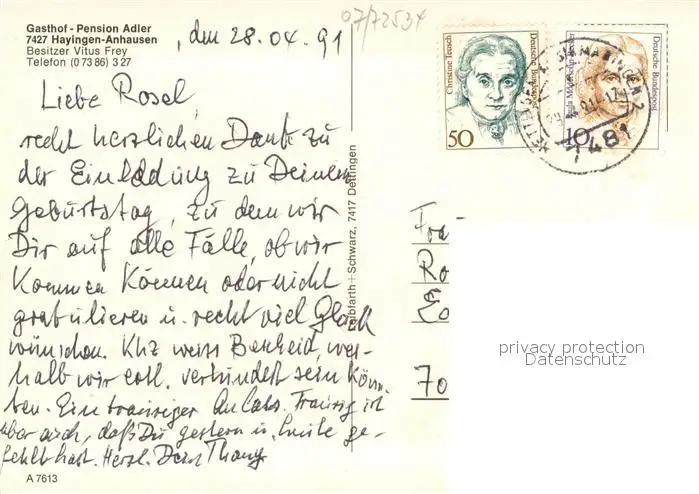 Gasthof - Pension Adler
7427 Hayingen-Anhausen
Besitzer Vitus Frey
Telefon (0 73 86) 3 27
, den 28.04.91
07/72534
Christine Teusch
Deutsche Bundespost
50
Deutsche Bundespost
10
7481
Liebe Rosel,
recht herzlichen Dank zu
der Einladung zu Deinem
Geburtstag, zu dem wir
Dir auf alle Fälle, ob wir
kommen können oder nicht
gratulieren u. recht viel Glück
wünschen. Khz weiss Bescheid, wes-
halb wir evtl. verhindert sein könn-
ten. Ein trauriger Anlass. Traurig ist
aber auch, daß Du gestern u. heute ge-
fehlt hast. Herzl. Dein
+ Schwarz, 7417 Dettingen
Ro
70
privacy protection
Datenschutz
A 7613